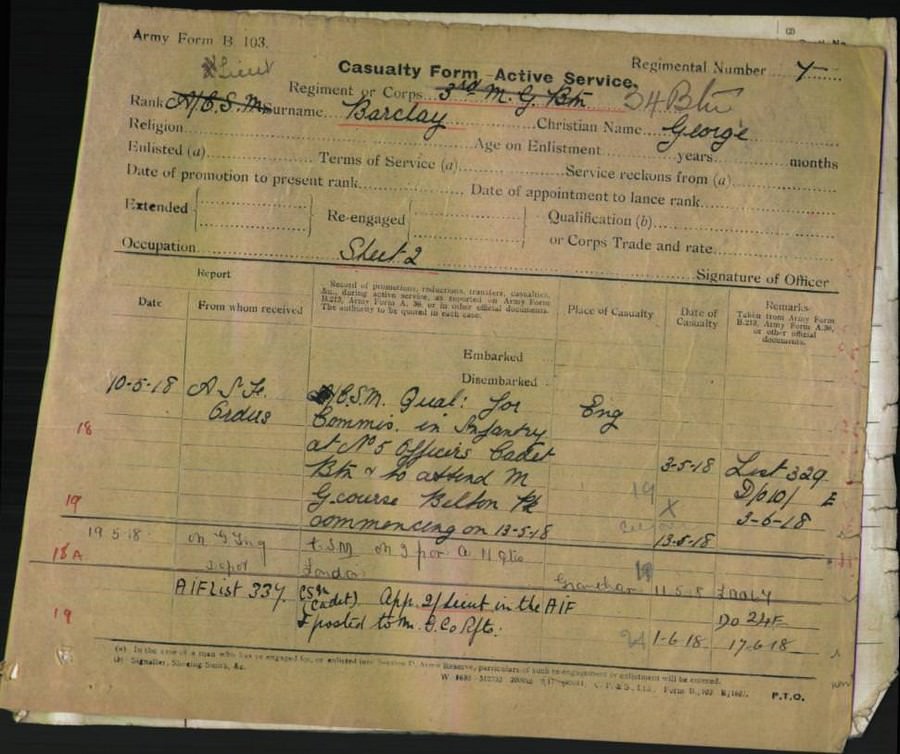 Army Form B. 103.
Casualty Form—Active Service.
Regimental Number 7
2/Lieut
Regiment or Corps 3rd M. G. Btn 34 Btn
Rank A/C.S.M. Surname Barclay Christian Name George
Religion Age on Enlistment years months
Enlisted (a) Terms of Service (a) Service reckons from (a)
Date of promotion to present rank Date of appointment to lance rank
Extended Re-engaged Qualification (b)
or Corps Trade and rate
Occupation Sheet 2 Signature of Officer
Report
Date From whom received
Record of promotions, reductions, transfers, casualties,
&c., during active service, as reported on Army Form
B.213, Army Form A. 36, or in other official documents.
The authority to be quoted in each case.
Place of Casualty
Date of
Casualty
Remarks
Taken from Army Form
B.213, Army Form A.36,
or other official
documents.
Embarked
Disembarked
10-5-18 Orders A/C.S.M. Qual: for Eng
18 Commis. in Infantry
at No 5 Officers Cadet 3-5-18 List 329
Btn & to attend M D/010/ E
19 G course Belton Pk 19 X 3-6-18
commencing on 13-5-18 13-5-18
19 5 18 on
18A Depot London Grantham
AIF List 337 CSM
(Cadet) App. 2/Lieut in the AIF Do 24E
19 & posted to M. G. Co Rfts: 1-6-18 17-6-18
(a) In the case of a man who has re-engaged for, or enlisted into Section D, Army Reserve, particulars of such re-engagement or enlistment will be entered.
(b) Signaller, Shoeing Smith, &c.
P.T.O.